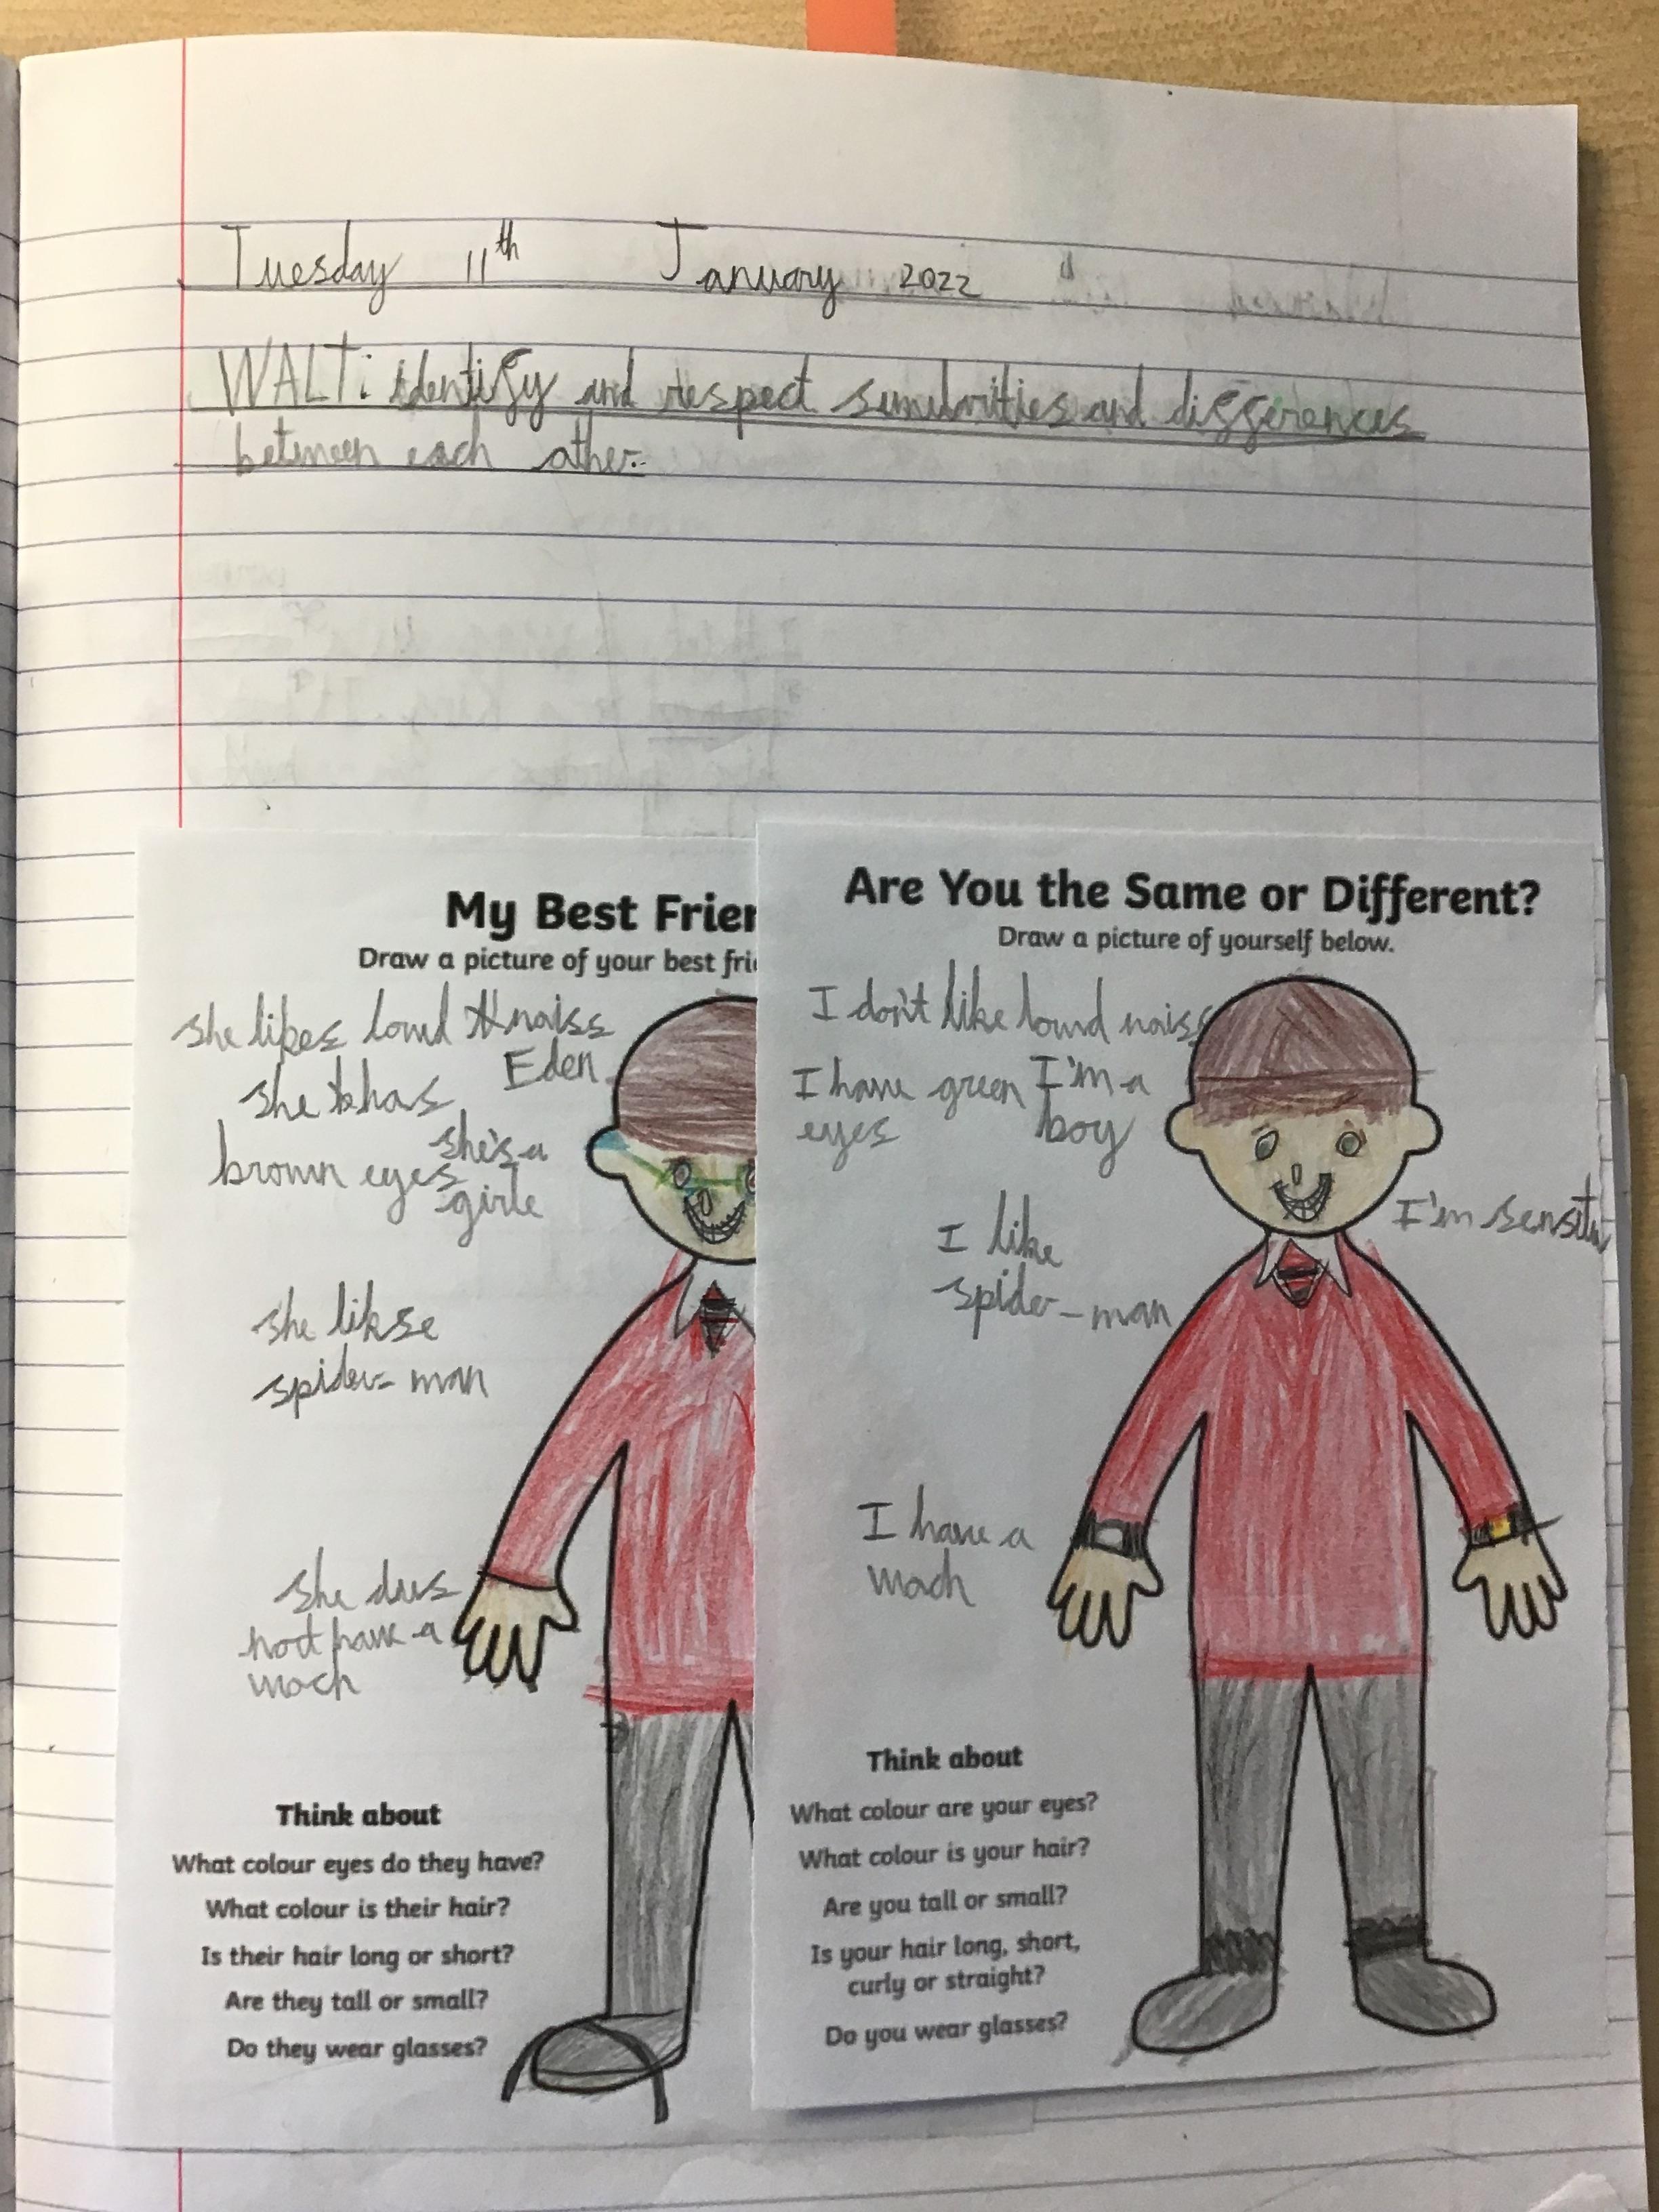 Tuesday 11th January 2022
WALT: identify and respect similarities and differences
between each other.
My Best Frien
Draw a picture of your best frie
she likes loud naiss
Eden
she has
brown eyes
she's a
girle
she likse
spider-man
she dus
not have a
wach
Think about
What colour eyes do they have?
What colour is their hair?
Is their hair long or short?
Are they tall or small?
Do they wear glasses?
Are You the Same or Different?
Draw a picture of yourself below.
I don't like loud naiss
I have green
eyes
I'm a
boy
I like
spider-man
I'm sensitiv
I have a
wach
Think about
What colour are your eyes?
What colour is your hair?
Are you tall or small?
Is your hair long, short,
curly or straight?
Do you wear glasses?